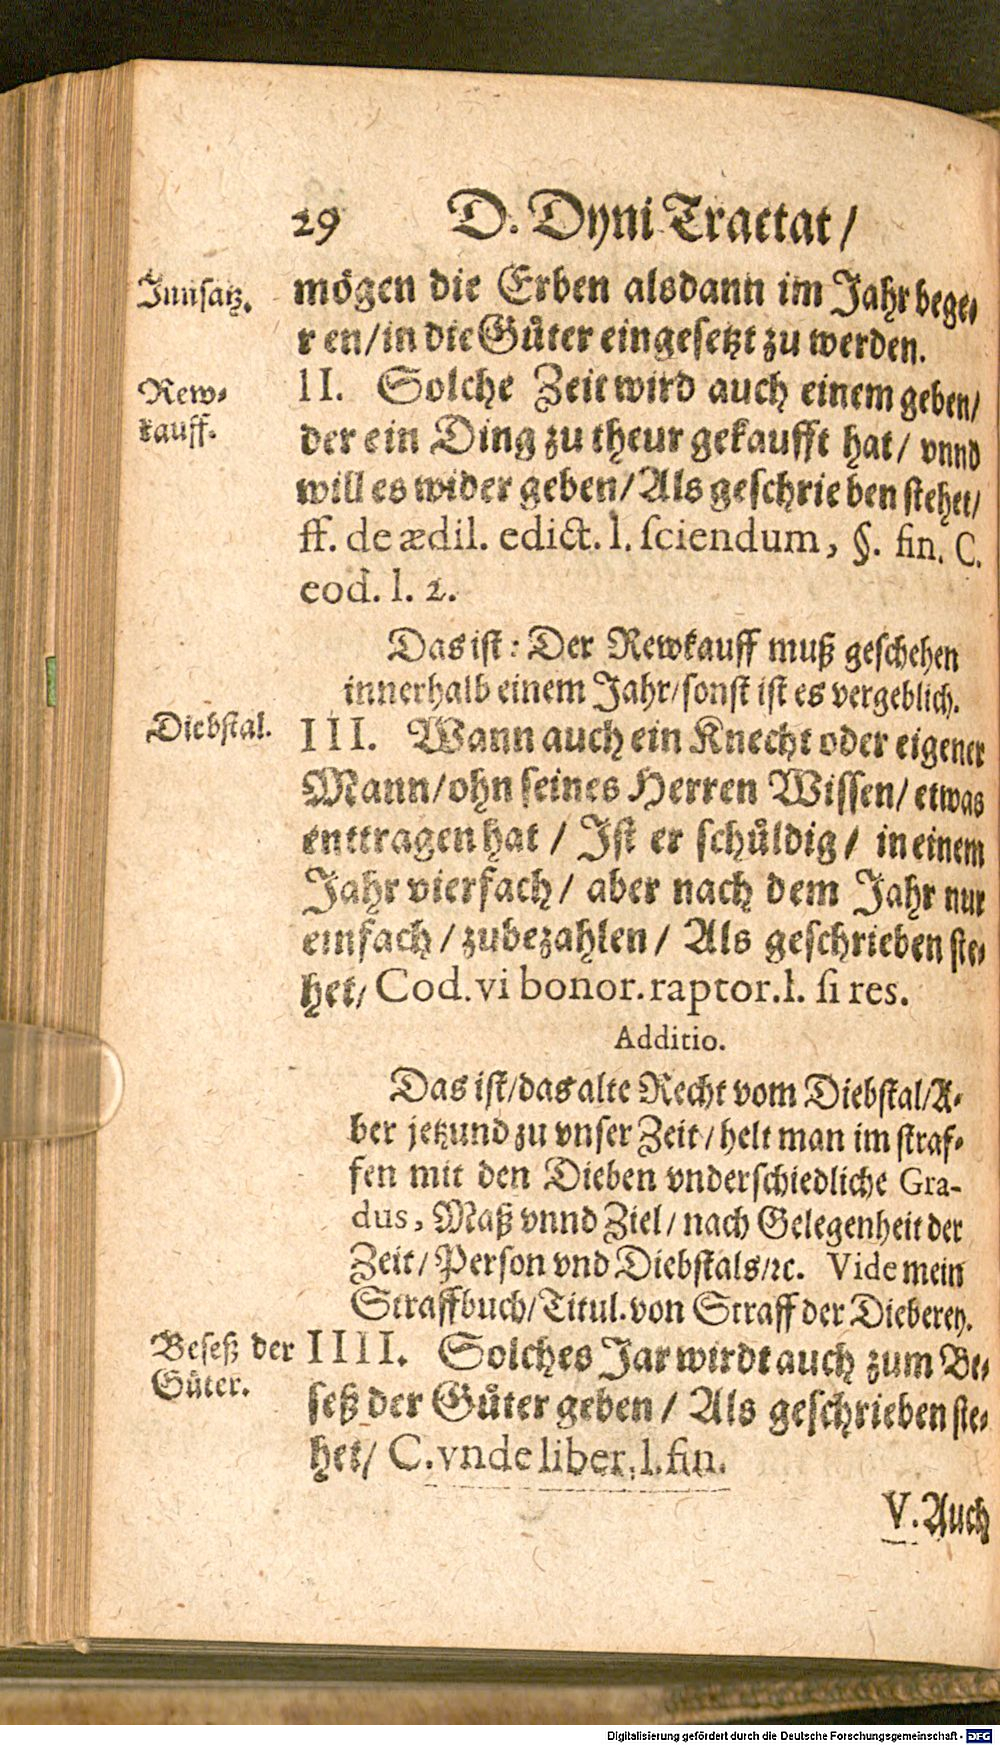 29 D. Dyni Tractat /
Innsatz.
mögen die Erben alsdann im Jahr bege-
r en/in die Gůter eingesetzt zu werden.
Rew-
kauff.
II. Solche Zeit wird auch einem geben/
der ein Ding zu theur gekaufft hat/ vnnd
will es wider geben/Als geschrie ben stehet/
ff. de ædil. edict. l. sciendum, §. fin. C.
eod. l. 2.
Das ist: Der Rewkauff muß geschehen
innerhalb einem Jahr/sonst ist es vergeblich.
Diebstal.
III. Wann auch ein Knecht oder eigener
Mann/ohn seines Herren Wissen/ etwas
enttragen hat / Ist er schůldig / in einem
Jahr vierfach/ aber nach dem Jahr nur
einfach/zubezahlen/ Als geschrieben ste-
het/ Cod. vi bonor. raptor. l. si res.
Additio.
Das ist/das alte Recht vom Diebstal/A-
ber jetzund zu vnser Zeit/helt man im straf-
fen mit den Dieben vnderschiedliche Gra-
dus, Maß vnnd Ziel/nach Gelegenheit der
Zeit/Person vnd Diebstals/ꝛc. Vide mein
Straffbuch/Titul. von Straff der Dieberey.
Beseß der
Gůter.
IIII. Solches Jar wirdt auch zum Be-
seß der Gůter geben/ Als geschrieben ste-
het/ C. vnde liber. l. fin.
V. Auch
Digitalisierung gefördert durch die Deutsche Forschungsgemeinschaft - DFG